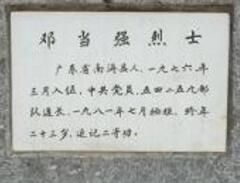 邓当强烈士
广东省南海县人，一九七六年
三月入伍，中共党员，五四二五九部
队连长，一九八一年七月牺牲，终年
二十三岁，追记二等功。